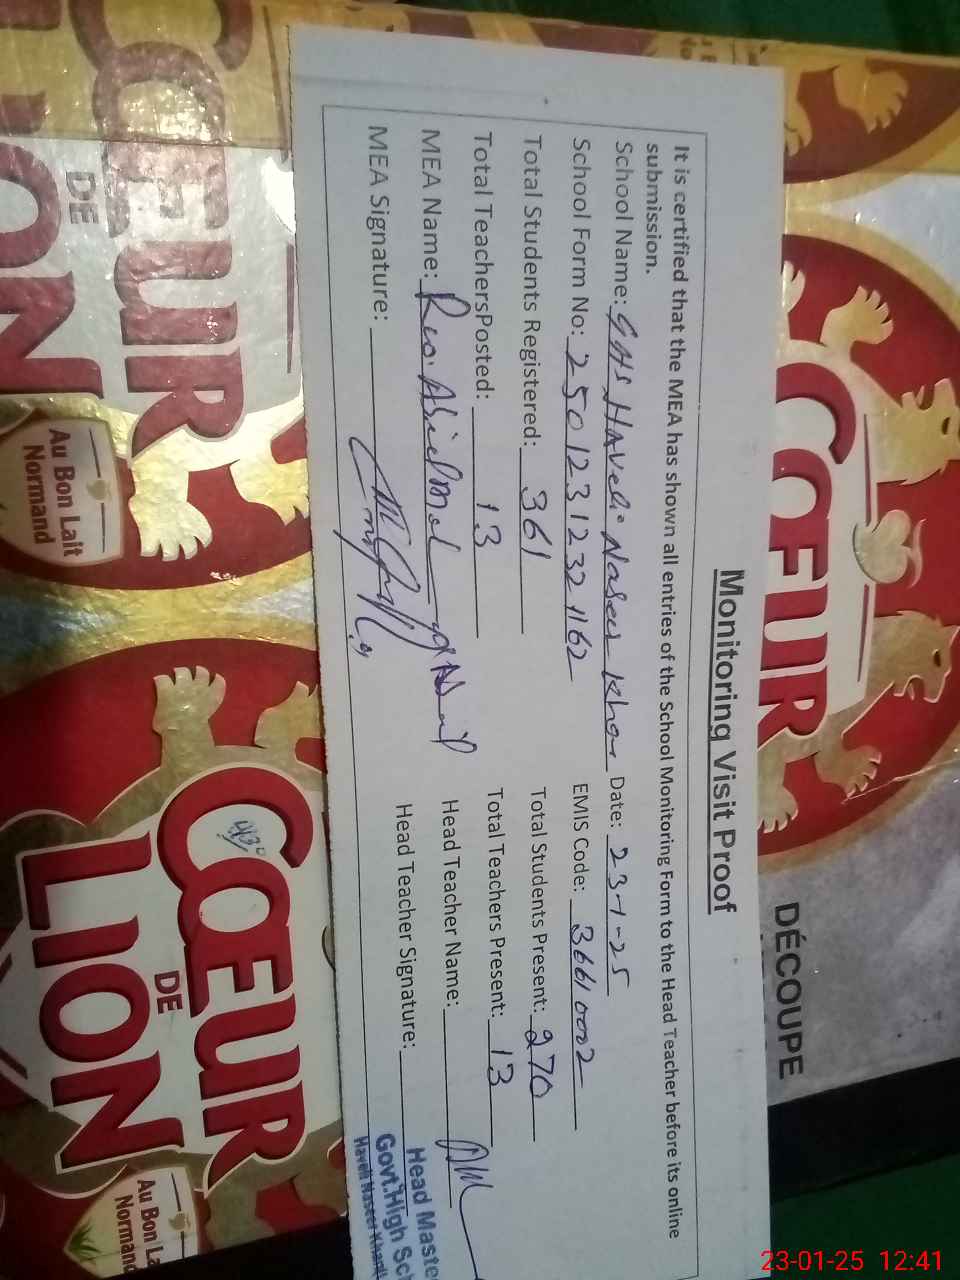 Monitoring Visit Proof
It is certified that the MEA has shown all entries of the School Monitoring Form to the Head Teacher before its online
submission.
School Name: GHS Haveli Naseer Khan Date: 23-1-25
School Form No: 25012312321162 EMIS Code: 36610002
Total Students Registered: 361 Total Students Present: 270
Total TeachersPosted: 13 Total Teachers Present: 13
MEA Name: Head Teacher Name:
MEA Signature: Head Teacher Signature:
Head Maste
Govt.High Sch
Haveli Naseer Khan
CŒUR
DE
LION
Au Bon Lait
Normand
CŒUR
DÉCOUPE
CŒUR
DE
LION
Au Bon La
Normand
23-01-25 12:41